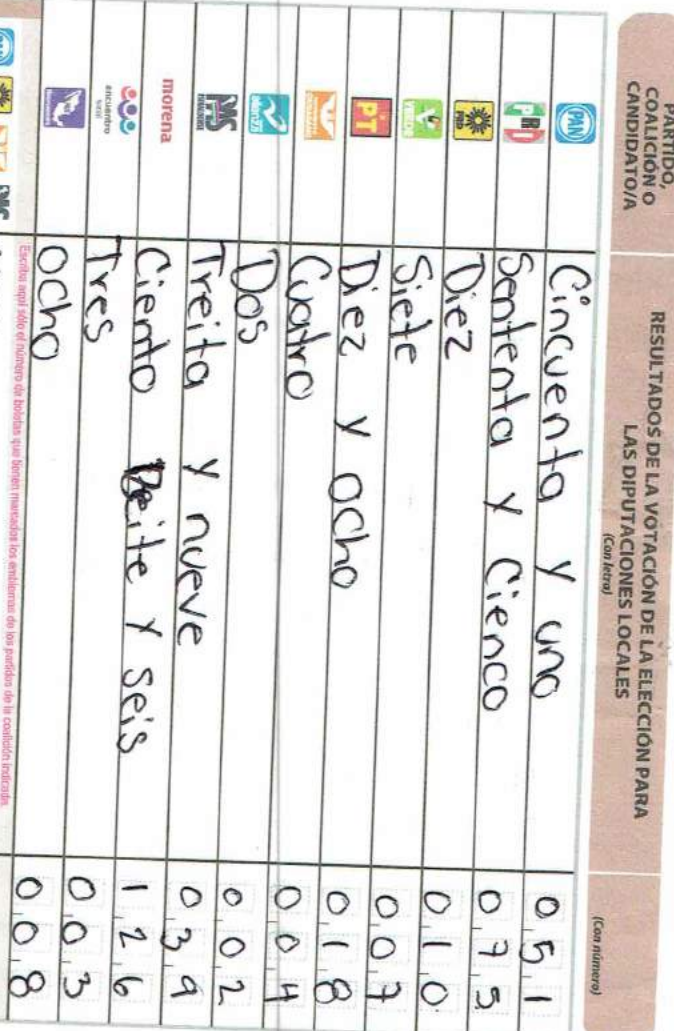 PARTIDO, COALICIÓN O CANDIDATO/A
RESULTADOS DE LA VOTACIÓN DE LA ELECCIÓN PARA LAS DIPUTACIONES LOCALES
(Con letra)
(Con número)
PAN Cincuenta y uno 051
PRI Sententa y Cienco 075
PRD Diez 010
VERDE Siete 007
PT Diez y ocho 018
Cuatro 004
alianza Dos 002
Treita y nueve 039
morena Ciento Veite y seis 126
encuentro social Tres 003
ocho 008
Escriba aquí sólo el número de boletas que tienen marcados los emblemas de los partidos de la coalición indicada.